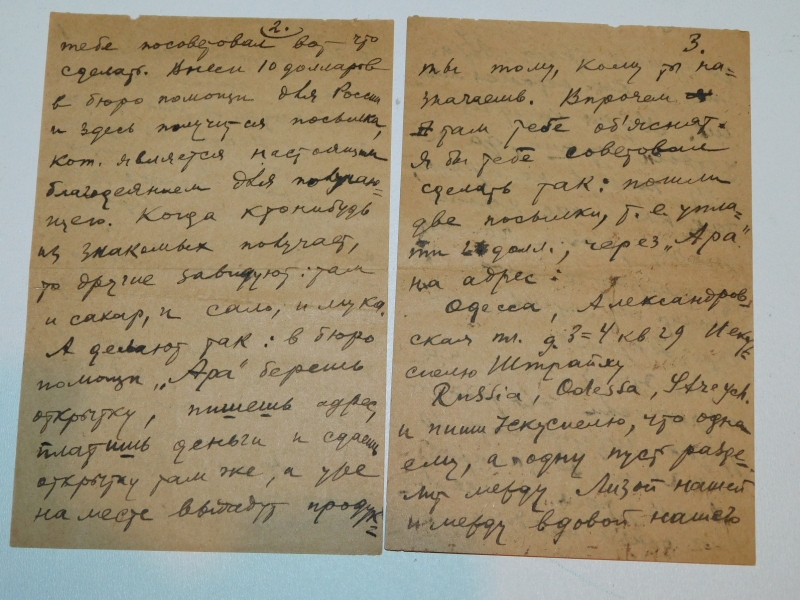 2.
тебе посоветовал вот что
сделать. Внеси 10 долларов
в бюро помощи для России
и здесь получится посылка,
кот. является настоящим
благодеянием для получаю-
щего. Когда ктонибудь
из знакомых получает,
то другие завидуют: там
и сахар, и сало, и мука.
А делают так: в бюро
помощи „Ара" берешь
открытку, пишешь адрес,
платишь деньги и сдаешь
открытку там же, а уже
на месте выдадут продук=
3.
ты тому, кому ты на=
значаешь. Впрочем
там тебе об'яснят.
Я бы тебе советовал
сделать так: пошли
две посылки, т. е. упла-
ти 20 долл., через „Ара"
на адрес:
Одесса, Александров-
ская пл. д. 3=4 кв 29 Иеку=
сиелю Штрайху
Russia, Odessa, Streych.
и пиши Iекусиелю, что одна
ему, а одну пуст разде-
лит между Лизой нашей
и между вдовой нашего